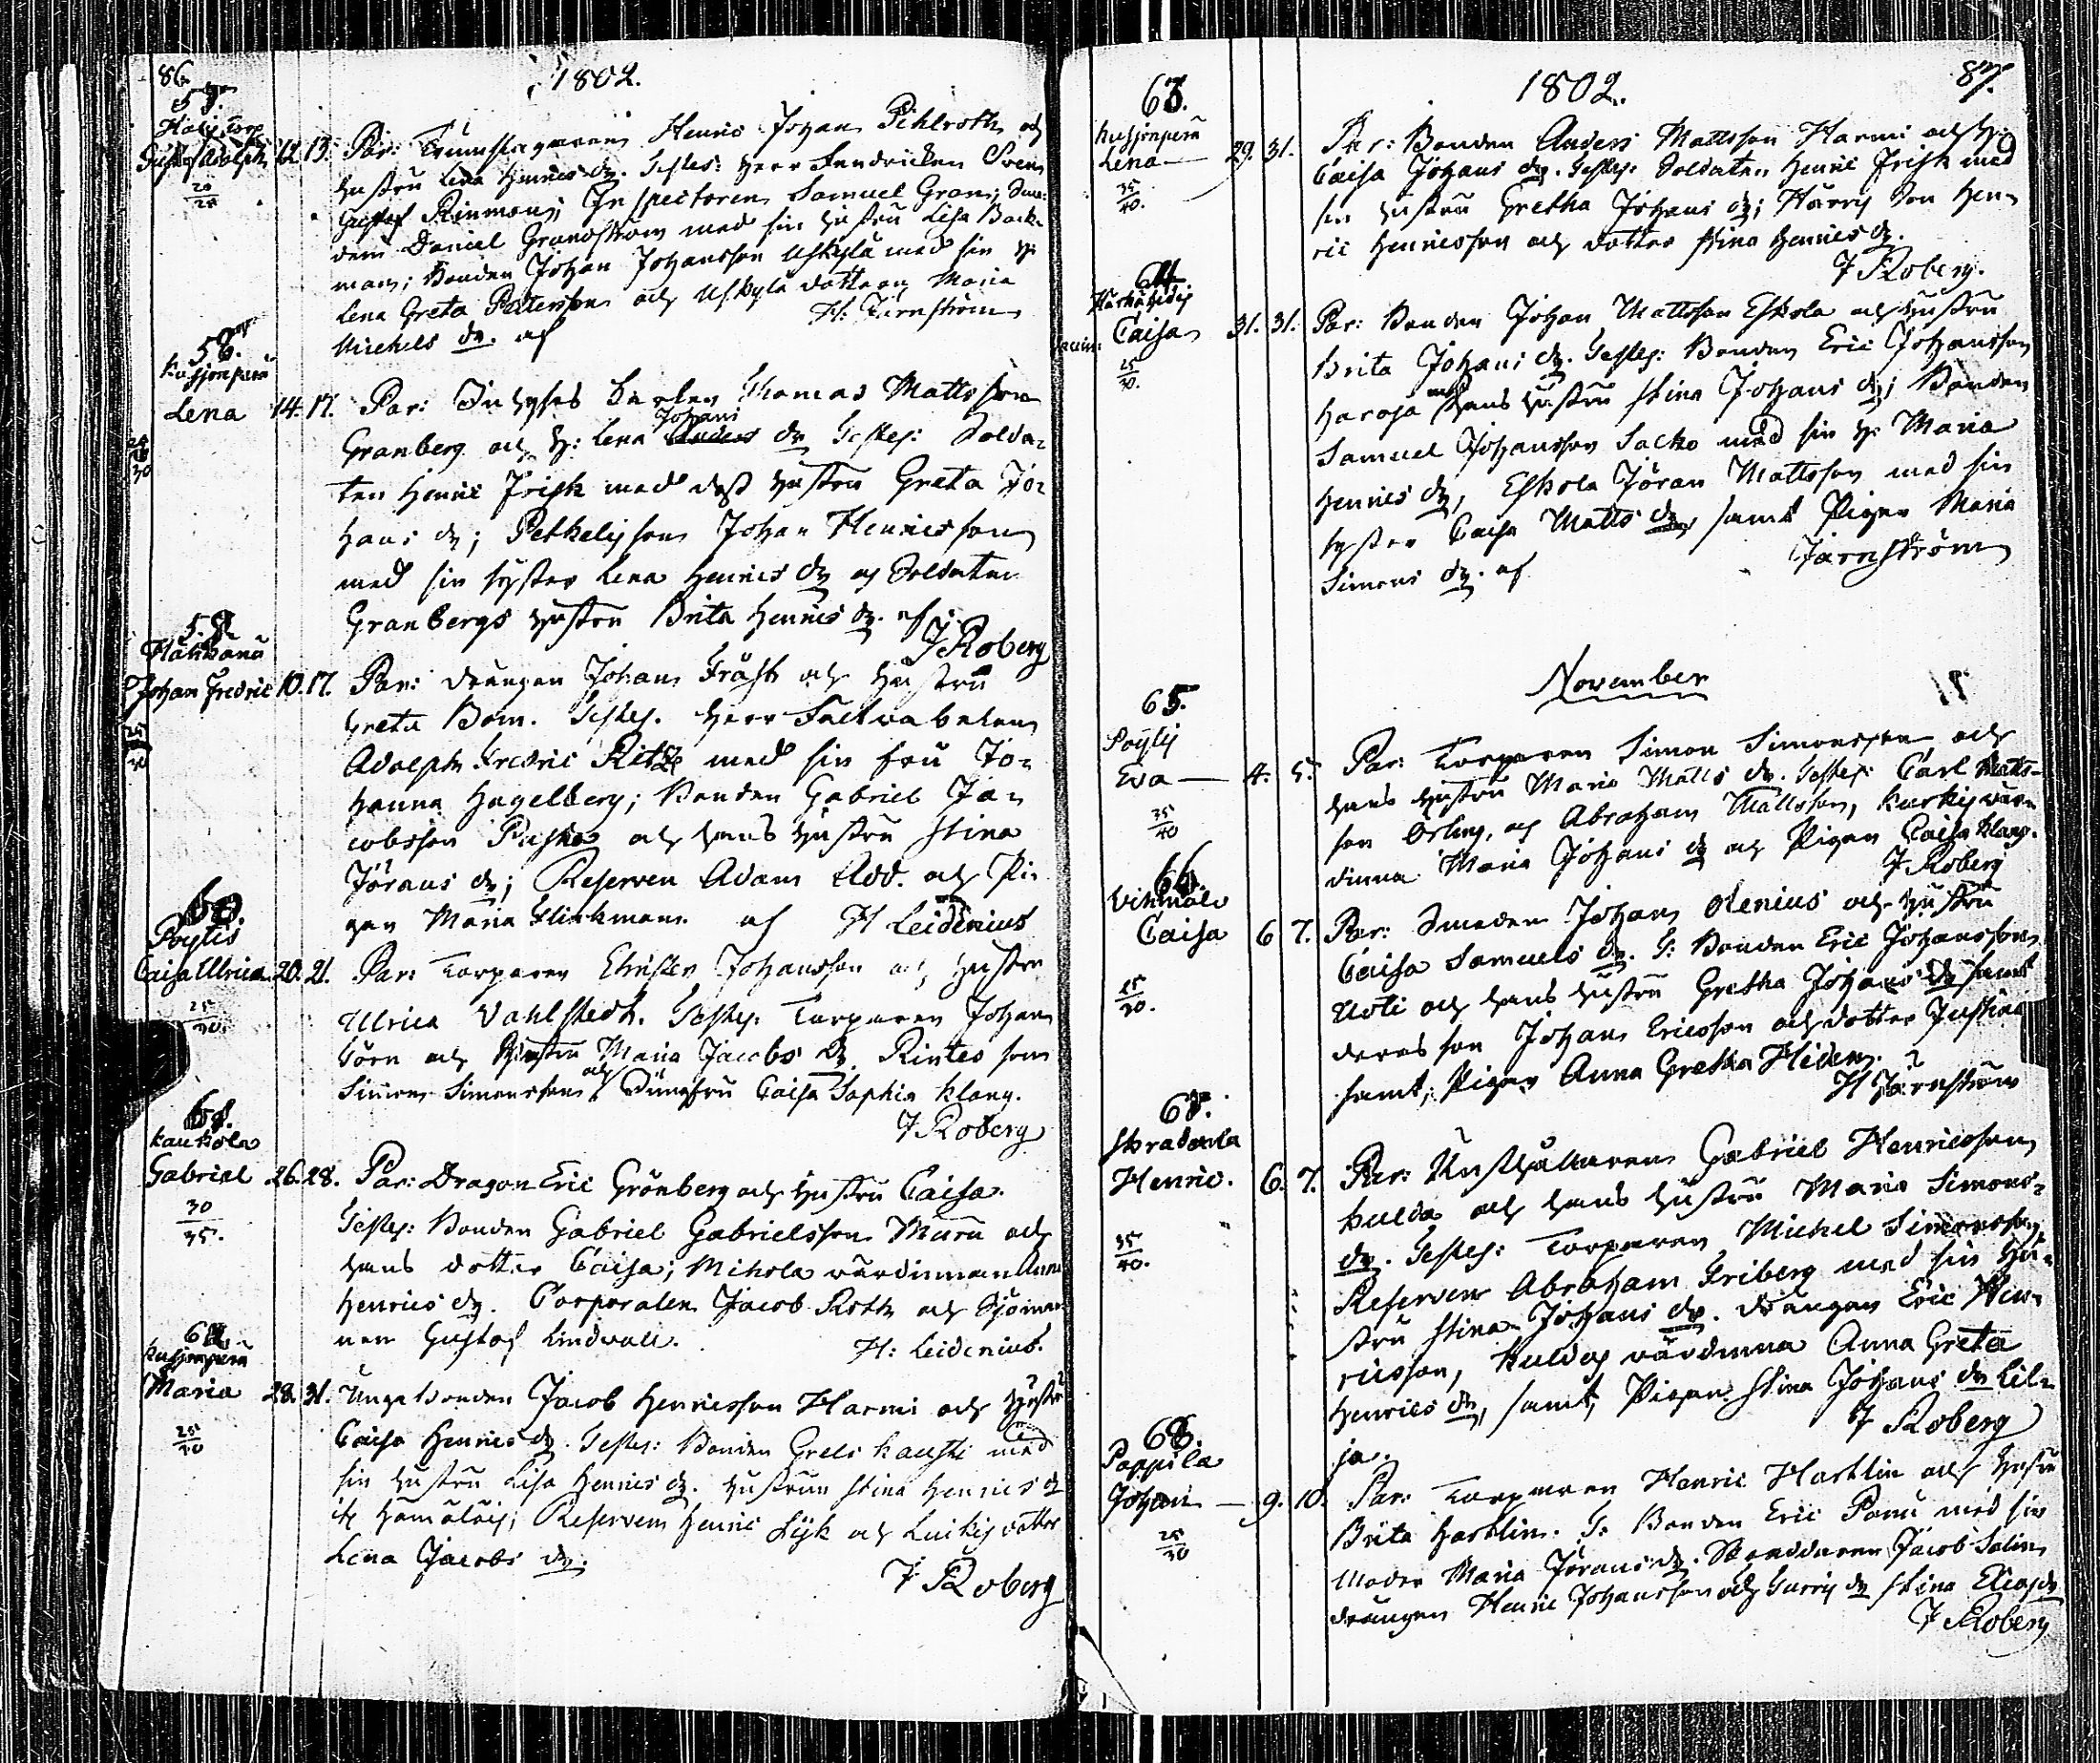 86.
1802.
57.
Gustaf Adolph 12. 13. Par: Trumslagaren Henric Johan Pihlroth och
20
25
hustru Lena Henrics dr. Testes: Herr Fendricken Sven
Gustaf Rinman; Inspectoren Samuel Gran; Sme-
den Daniel Grandstrom med sin hustru Lisa Back-
man; Bonden Johan Johansson Uskyla med sin h:
Lena Greta Pettersson och Uskyla dottren Maria
Michels dr. af H. Jernström
58.
Kusjonperä
Lena 14. 17. Par: Inhyses Karlen Thomas Mattsson
Granberg och h: Lena Johans dr Testes: Solda-
30
ten Henric Frisk med dess hustru Greta Jo-
hans dr; Pethelis son Johan Henricsson
med sin syster Lena Henrics dr och Soldaten
Granbergs hustru Brita Henrics dr. af
J Roberg
59.
Johan Fredric 10. 17. Par: drängen Johan Fråst och hustru
Greta Bom. Testes. Herr
25
30
Adolph Fredric Ritz med sin fru Jo-
hanna Hagelberg; Bonden Gabriel Ja-
cobsson Paska och hans hustru Stina
Jörans dr; Reserven Adam Add. och Pi-
gan Maria Flinkman. af H Leidenius
60.
Poytis
Caisa Ulrica 20. 21. Par: Torparen Christer Johansson och hustru
25
30.
Ulrica Vahlstedt. Testes. Torparen Johan
Törn och hustru Maria Jacobs dr. Rintes son
Simon Simonsson och Jungfru Caisa Sophia Klang.
J Roberg
61.
Kaukola
Gabriel 26. 28. Par: Dragon Eric Grönberg och hustru Caisa.
30
35.
Testes: Bonden Gabriel Gabrielsson Muru och
hans dotter Caisa; Mikola värdinnan Anna
Henrics dr. Corporalen Jacob Roth och
Gustaf Lindvall. H: Leidenius.
62.
Kusjonperä
Maria 28. 31. Unga bonden Jacob Henricsson Harmi och hustru
25
30
Caisa Henrics dr. Testes: Bonden Grels Kauski med
sin hustru Lisa Henrics dr. hustrun Stina Henrics dr
Reserven Henric och dotter
Lena Jacobs dr.
J Roberg
87.
1802.
63.
Kusjonperä
Lena — 29. 31. Par: Bonden Anders Mattsson Harmi och h:
35
40.
Caisa Johans dr. Testes: Soldaten Henric Frisk med
sin hustru Gretha Johans dr; Harris Son Hen-
ric Henricsson och dotter Stina Henrics dr.
J Roberg.
64
Caisa 31. 31. Par: Bonden Johan Mattsson Eskola och hustru
25
30.
Brita Johans dr. Testes: Bonden Eric Johansson
Haroja med hans hustru Stina Johans dr; Bonden
Samuel Johansson Sacko med sin h: Maria
Henrics dr, Eskola Jöran Mattsson med sin
syster Caisa Matts dr, samt Pigan Maria
Simons dr. af Järnström
November
65.
Eva — 4. 5. Par: Torparen Simon Simonsson och
35
40
hans hustru Maria Matts dr. Testes: Carl Matts-
son Örling, och Abraham Mattsson, värdinna
Maria Johans dr och Pigan Caisa Klang.
J Roberg
66.
Caisa 6 7. Par: Smeden Johan Olenius och hustru
25
30.
Caisa Samuels dr. T: Bonden Eric Johansson
Uoti och hans hustru Gretha Johans dr samt
deras son Johan Ericsson och dotter Justina
samt, Pigan Anna Gretha Hiden.
H Järnström
67.
Henric. 6. 7. Par: Gabriel Henricsson
35
40.
Kulda och hans hustru Maria Simons-
dr. Testes: Torparen Michel Simonsson,
Reserven Abraham Friberg med sin hu-
stru Stina Johans dr. drängen Eric Hen-
ricsson, Kuldas värdinna Anna Greta
Henrics dr, samt, Pigan Stina Johans dr Lil-
ja. J Roberg
68.
Pappila
Johan — 9. 10. Par: Torparen Henric Harklin och hustru
25
30
Brita Harklin. T: Bonden Eric Panu med sin
Moder Maria Jörans dr. Skräddaren Jacob Salin,
drängen Henric Johansson och dr Stina Elias dr
J Roberg